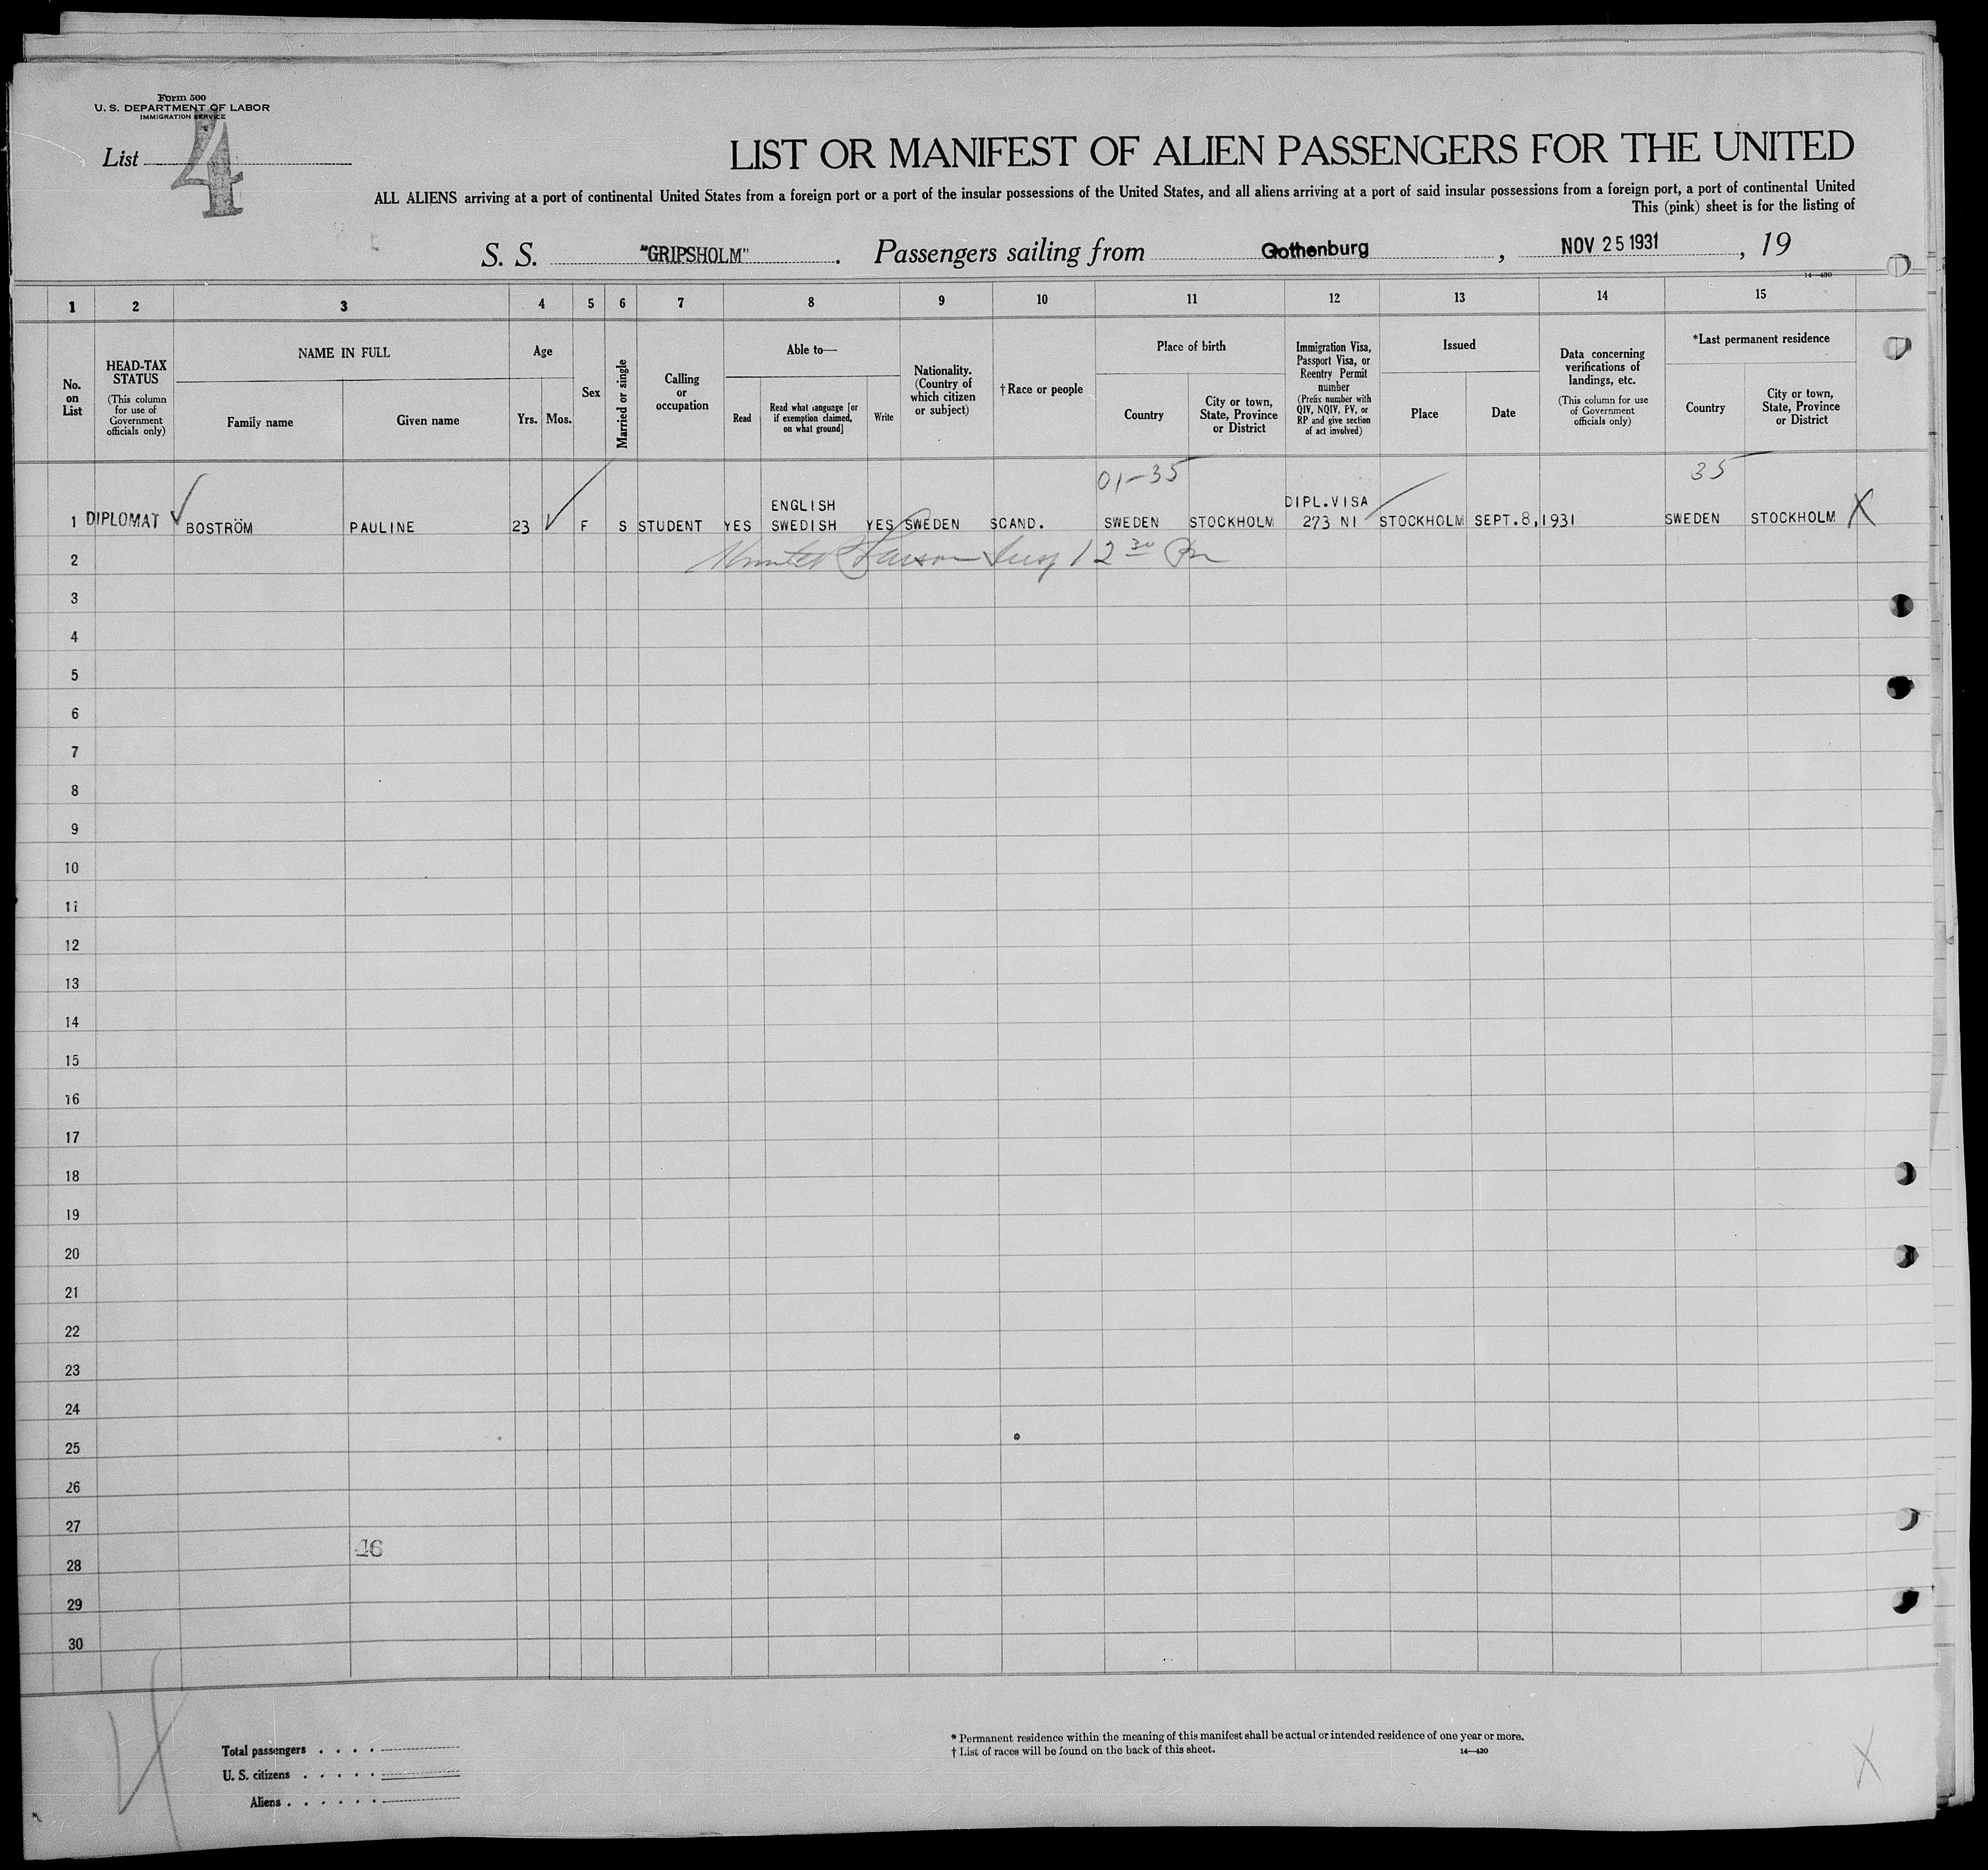 Form 500
U. S. DEPARTMENT OF LABOR
IMMIGRATION SERVICE
List 4
LIST OR MANIFEST OF ALIEN PASSENGERS FOR THE UNITED
ALL ALIENS arriving at a port of continental United States from a foreign port or a port of the insular possessions of the United States, and all aliens arriving at a port of said insular possessions from a foreign port, a port of continental United
This (pink) sheet is for the listing of
S. S. "GRIPSHOLM". Passengers sailing from Gothenburg, NOV 25 1931, 19
14—430
1 2 3 4 5 6 7 8 9 10 11 12 13 14 15
No. on List
HEAD-TAX STATUS
(This column for use of Government officials only)
NAME IN FULL
Family name
Given name
Age
Yrs. Mos.
Sex
Married or single
Calling or occupation
Able to—
Read
Read what language [or if exemption claimed, on what ground]
Write
Nationality. (Country of which citizen or subject)
†Race or people
Place of birth
Country
City or town, State, Province or District
Immigration Visa, Passport Visa, or Reentry Permit number
(Prefix number with QIV, NQIV, PV, or RP and give section of act involved)
Issued
Place
Date
Data concerning verifications of landings, etc.
(This column for use of Government officials only)
*Last permanent residence
Country
City or town, State, Province or District
01-35 35
ENGLISH DIPL.VISA
1 DIPLOMAT BOSTRÖM PAULINE 23 F S STUDENT YES SWEDISH YES SWEDEN SCAND. SWEDEN STOCKHOLM 273 NI STOCKHOLM SEPT.8,1931 SWEDEN STOCKHOLM X
2 12 30 Pm
3
4
5
6
7
8
9
10
11
12
13
14
15
16
17
18
19
20
21
22
23
24
25
26
27
46
28
29
30
Total passengers . . . .
U. S. citizens . . . . .
Aliens . . . . . .
* Permanent residence within the meaning of this manifest shall be actual or intended residence of one year or more.
† List of races will be found on the back of this sheet.
14—430
X